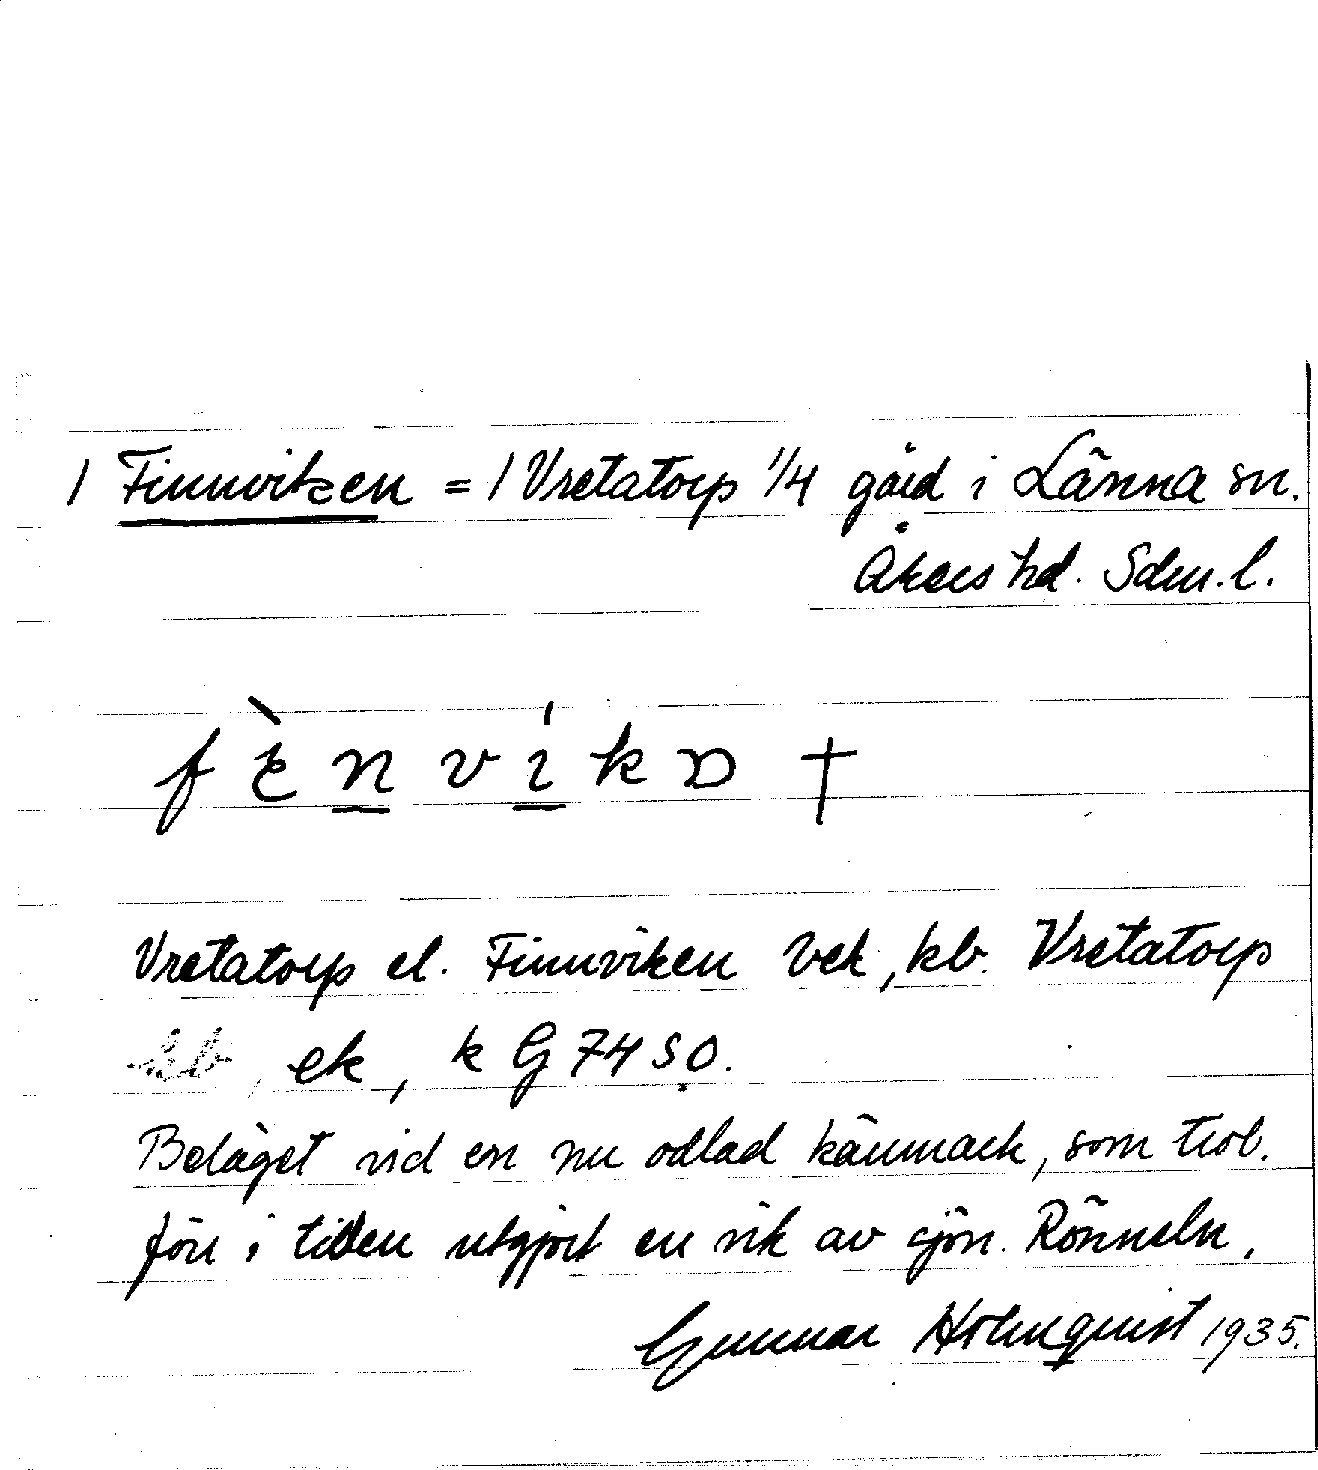 1 Finnviken = 1 Vretatorp 1/4 gård i Länna sn.
Åkers hd. Sdm. l.
Vretatorp el. Finnviken bek, kb. Vretatorp
hb, ek, k G 74 SO.
Beläget vid en nu odlad kärrmark, som trol.
förr i tiden utgjort en vik av sjön. Rönneln.
Gunnar Holmquist 1935.